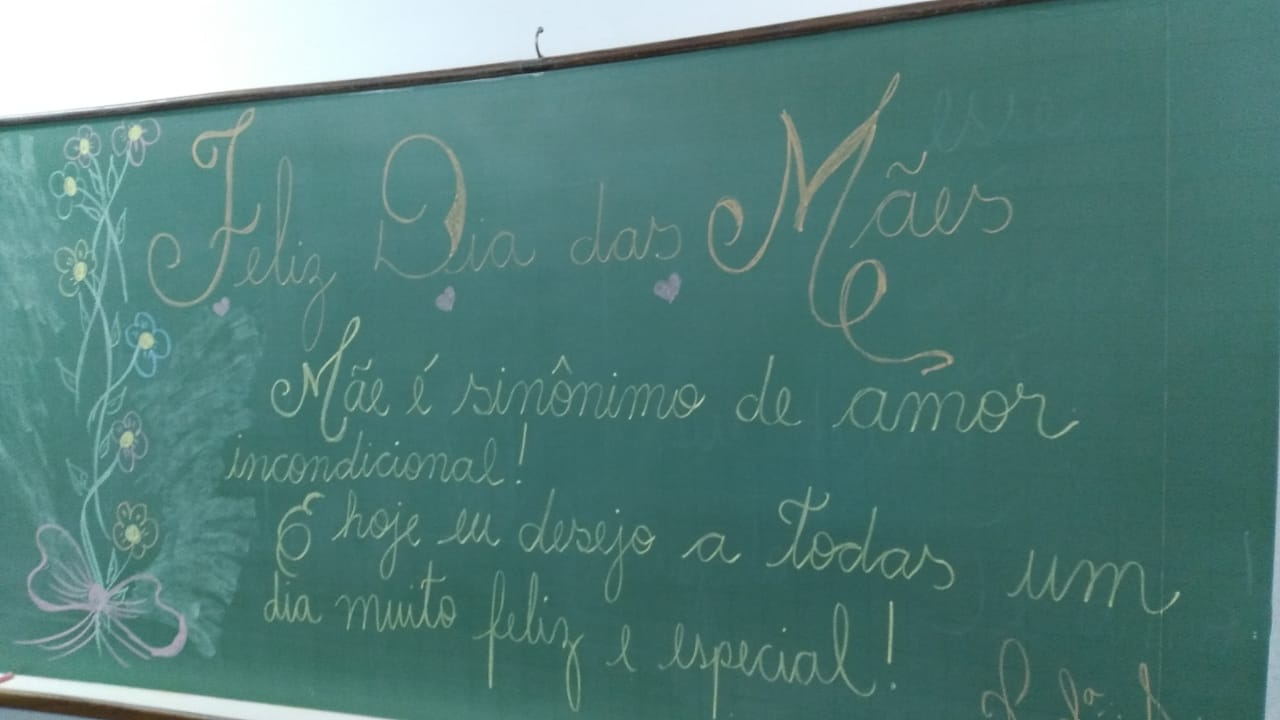 Feliz Dia das Mães
Mãe é sinônimo de amor
incondicional!
E hoje eu desejo a todas um
dia muito feliz e especial!